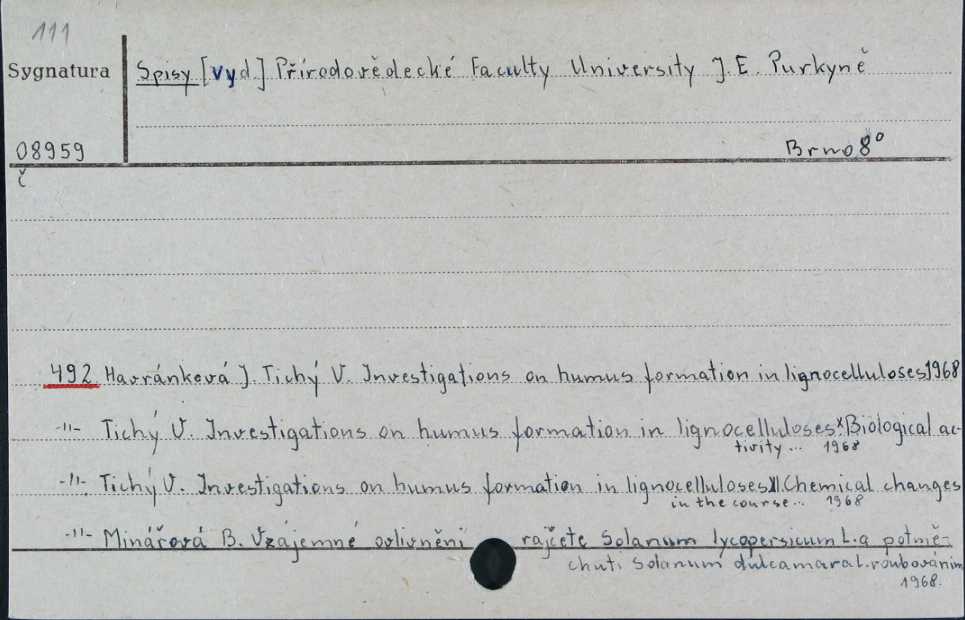 111
Sygnatura
Spisy [vyd.] Přírodovědecké Faculty University J. E. Purkyně
08959
Brno 8°
č
492 Havránková J. Tichý V. Investigations on humus formation in lignocelluloses 1968
-"- Tichý V. Investigations on humus formation in lignocelluloses X Biological ac-
tivity... 1968
-"- Tichý V. Investigations on humus formation in lignocelluloses XI. Chemical changes
in the course... 1968
-"- Minářová B. Vzájemné ovlivnění rajčete Solanum lycopersicum L. a potmě-
chuti Solanum dulcamara L. roubováním
1968.